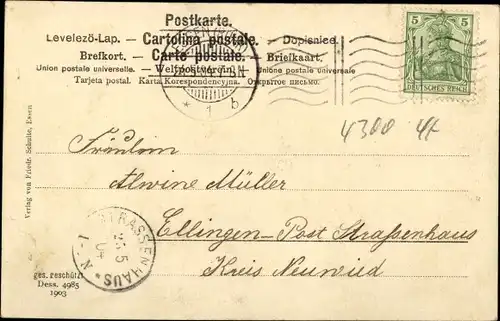 Postkarte.
Levelező-Lap. — Cartolina postale. — Dopisnice.
Brefkort. — Carte postale. — Briefkaart.
Union postale universelle. — Weltpostverein. — Unione postale universale
Tarjeta postal. Karta Korespondencyjna. Открытое письмо.
5 5
DEUTSCHES REICH
* 1 b
4300
Fräulein
Alwine Müller
Ellingen-Post Straßenhaus
Kreis Neuwied
STRASSENHAUS
Verlag von Friedr. Schulte, Essen
ges. geschützt
Dess. 4985
1903